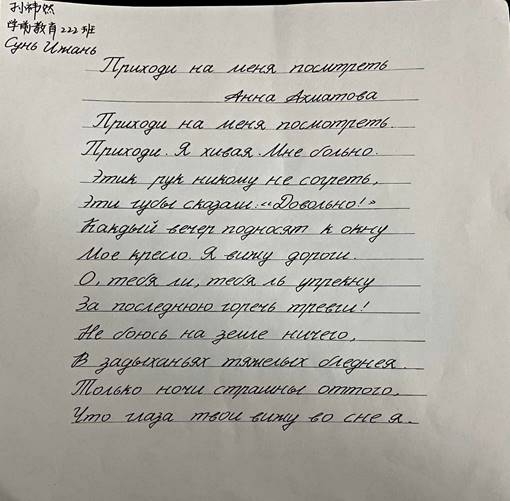 孙祎然
学前教育222班
Сунь Ижань
Приходи на меня посмтреть
Анна Ахматова
Приходи на меня посмотреть.
Приходи. Я хивая. Мне больно.
Этик рук никому не согреть,
Эти губы сказали: «Довольно!»
Каждый вечер подносят к окну
Мое кресло. Я вижу дороги.
О, тебя ли, тебя ль упрекну
За последнюю горечь тревги!
Не боюсь на земле ничего,
В задыханьях тяжелых бледнея.
Только ночи страшны оттого,
Что глаза твои вижу во сне я.